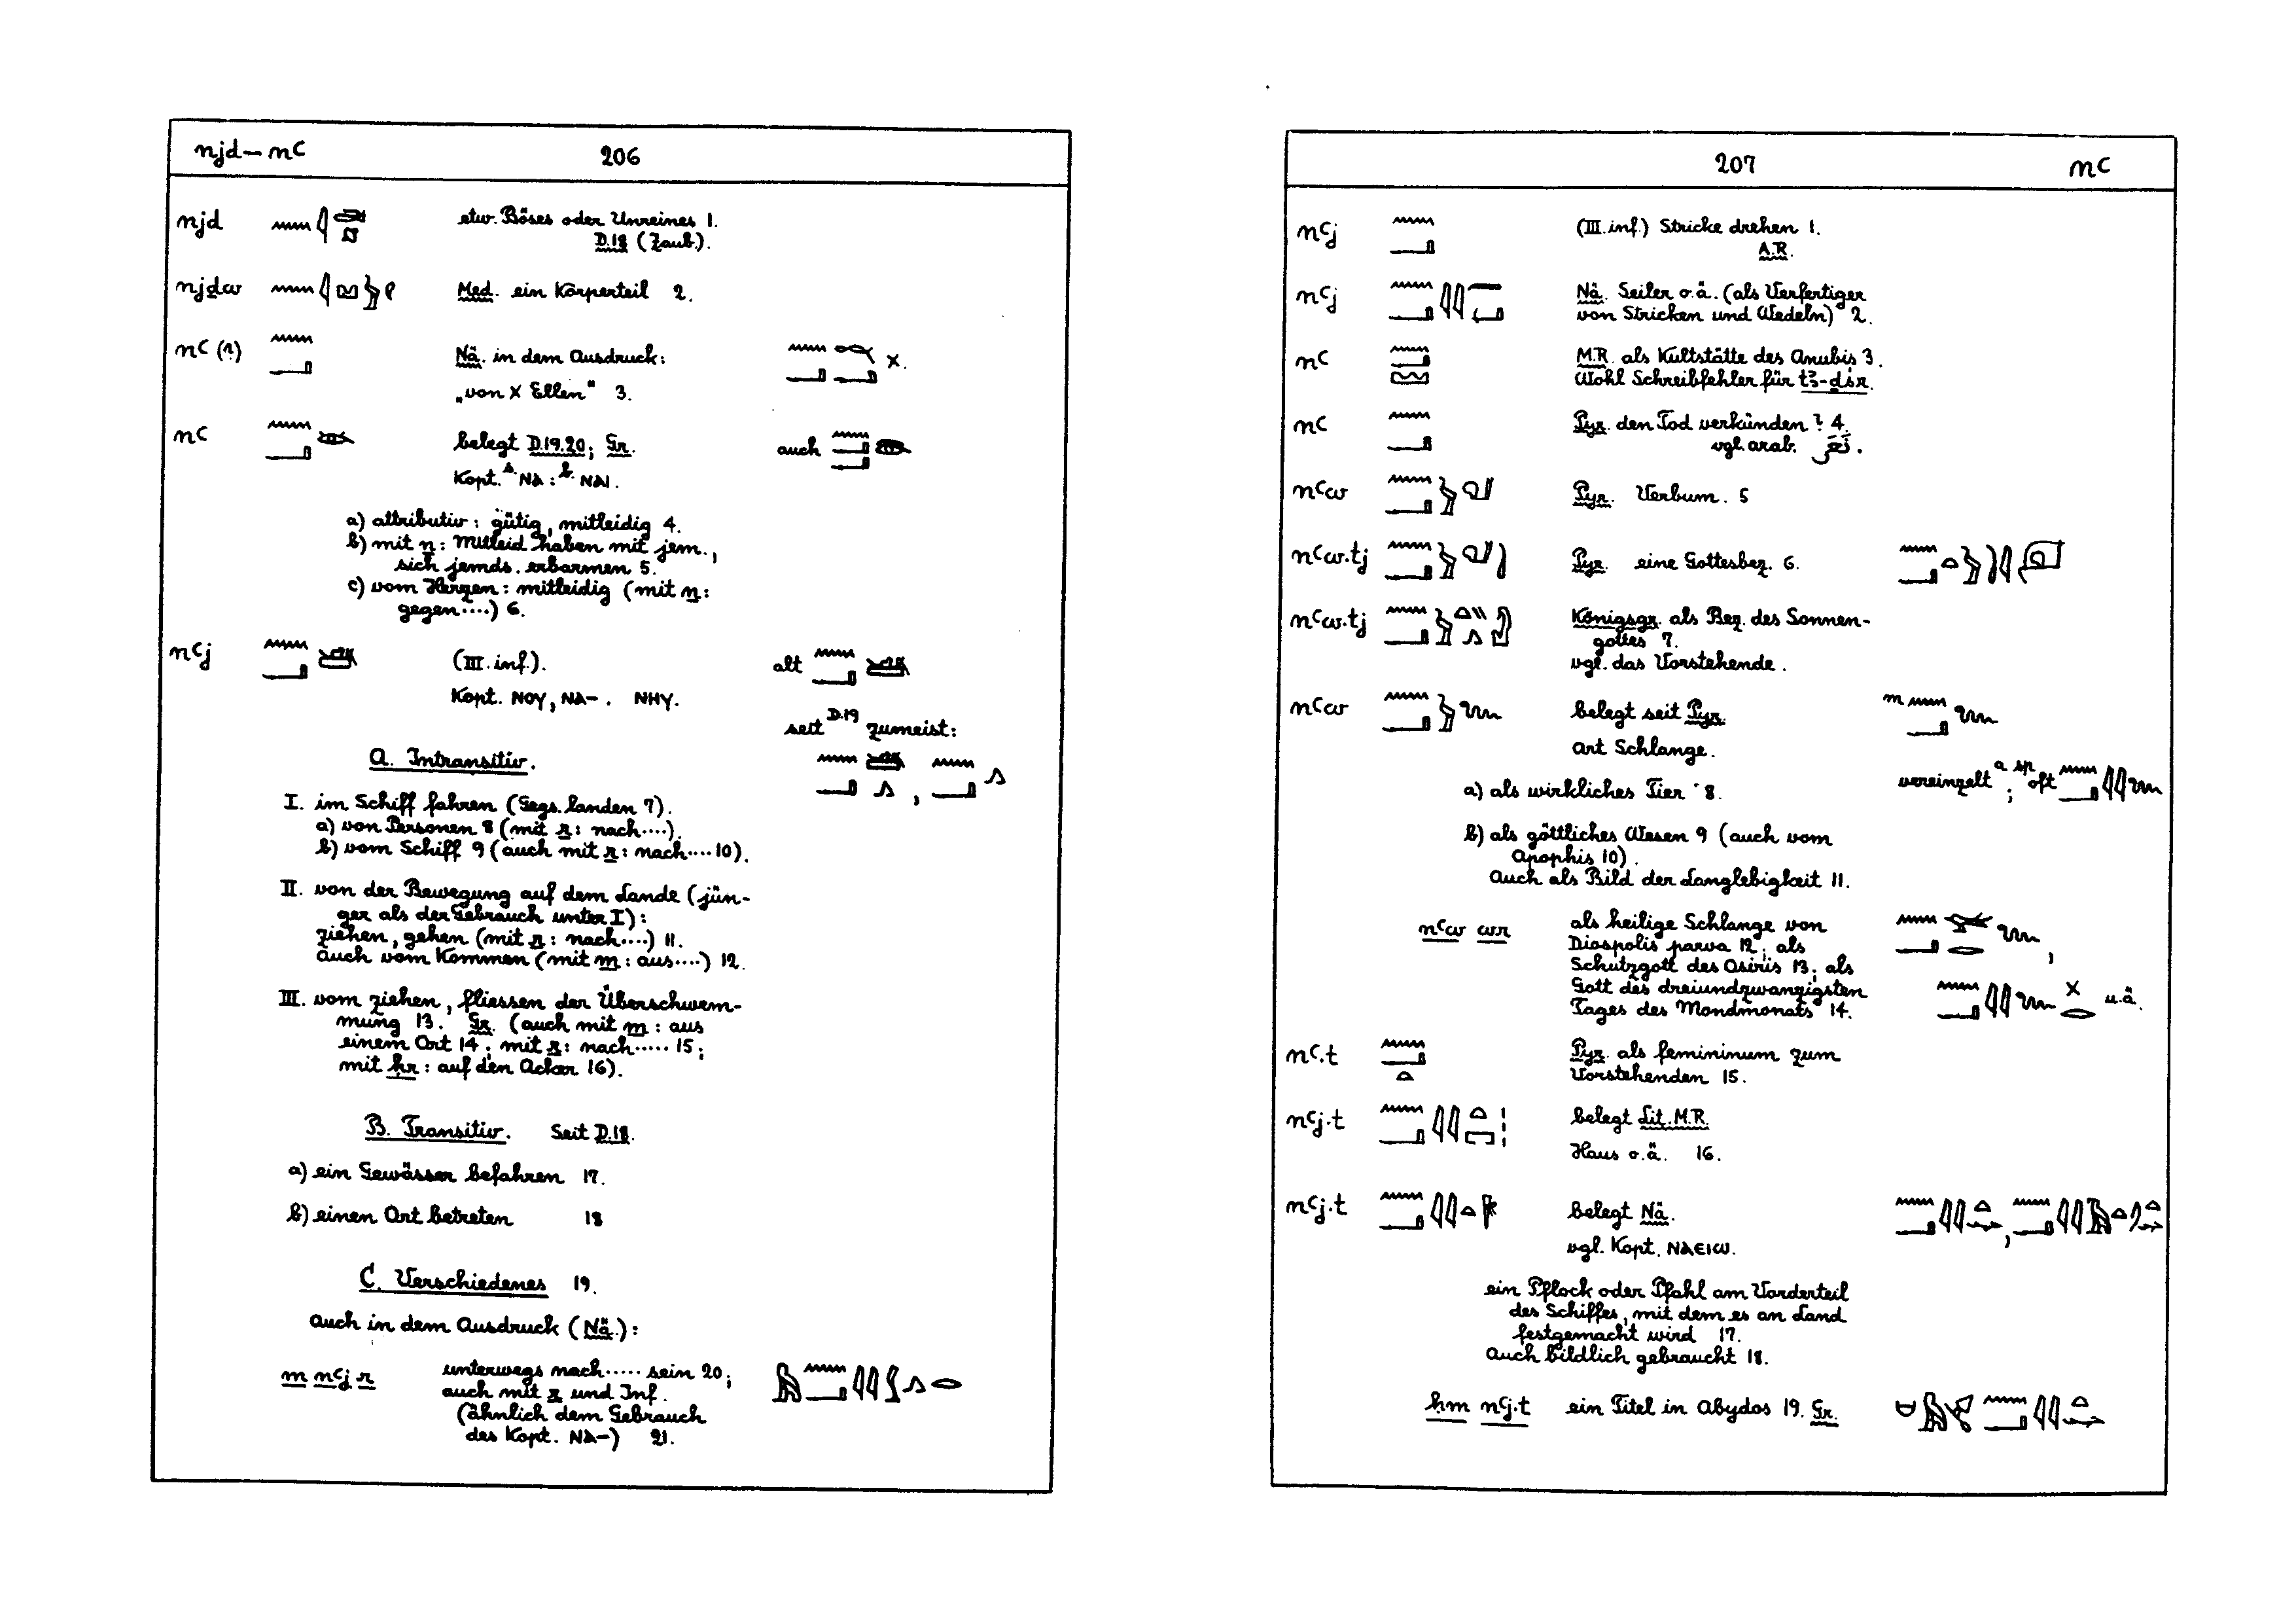 njd – nꜥ 206
njd etw. Böses oder Unreines 1.
D.18 (Zaub.).
njdw Med. ein Körperteil 2.
nꜥ (r) Nä. in dem Ausdruck: x.
„von X Ellen" 3.
nꜥ belegt D.19.20; Gr. auch
Kopt. s. ⲛⲁ : b. ⲛⲁⲓ.
a) attributiv: gütig, mitleidig 4.
b) mit n: Mitleid haben mit jem.,
sich jemds. erbarmen 5.
c) vom Herzen: mitleidig (mit n:
gegen....) 6.
nꜥj (III. inf.). alt
Kopt. ⲛⲟⲩ, ⲛⲁ-. ⲛⲏⲩ.
seit D.19 zumeist:
A. Intransitiv.
I. im Schiff fahren (Gegs. landen 7).
a) von Personen 8 (mit r: nach....).
b) vom Schiff 9 (auch mit r: nach.... 10).
II. von der Bewegung auf dem Lande (jün-
ger als der Gebrauch unter I):
ziehen, gehen (mit r: nach....) 11.
auch vom Kommen (mit m: aus....) 12.
III. vom ziehen, fliessen der Überschwem-
mung 13. Gr. (auch mit m: aus
einem Ort 14; mit r: nach..... 15;
mit ḥr: auf den Acker 16).
B. Transitiv. Seit D.18.
a) ein Gewässer befahren 17.
b) einen Ort betreten 18
C. Verschiedenes 19.
auch in dem Ausdruck (Nä.):
m nꜥj r unterwegs nach..... sein 20;
auch mit r und Inf.
(ähnlich dem Gebrauch
des Kopt. ⲛⲁ-) 21.
207 nꜥ
nꜥj (III. inf.) Stricke drehen 1.
A.R.
nꜥj Nä. Seiler o.ä. (als Verfertiger
von Stricken und Wedeln) 2.
nꜥ M.R. als Kultstätte des Anubis 3.
Wohl Schreibfehler für tꜣ-ḏsr.
nꜥ Pyr. den Tod verkünden? 4.
vgl. arab. نَعَى.
nꜥw Pyr. Verbum. 5
nꜥw.tj Pyr. eine Gottesbez. 6.
nꜥw.tj Königsgr. als Bez. des Sonnen-
gottes 7.
vgl. das Vorstehende.
nꜥw belegt seit Pyr. m
Art Schlange.
vereinzelt a; sp. oft
a) als wirkliches Tier 8.
b) als göttliches Wesen 9 (auch vom
Apophis 10).
Auch als Bild der Langlebigkeit 11.
nꜥw wr als heilige Schlange von
Diospolis parva 12; als
Schutzgott des Osiris 13; als
Gott des dreiundzwanzigsten
Tages des Mondmonats 14. u.ä.
nꜥ.t Pyr. als femininum zum
Vorstehenden 15.
nꜥj.t belegt Lit. M.R.
Haus o.ä. 16.
nꜥj.t belegt Nä.
vgl. Kopt. ⲛⲁⲉⲓⲱ.
ein Pflock oder Pfahl am Vorderteil
des Schiffes, mit dem es an Land
festgemacht wird 17.
Auch bildlich gebraucht 18.
ḥm nꜥj.t ein Titel in Abydos 19. Gr.